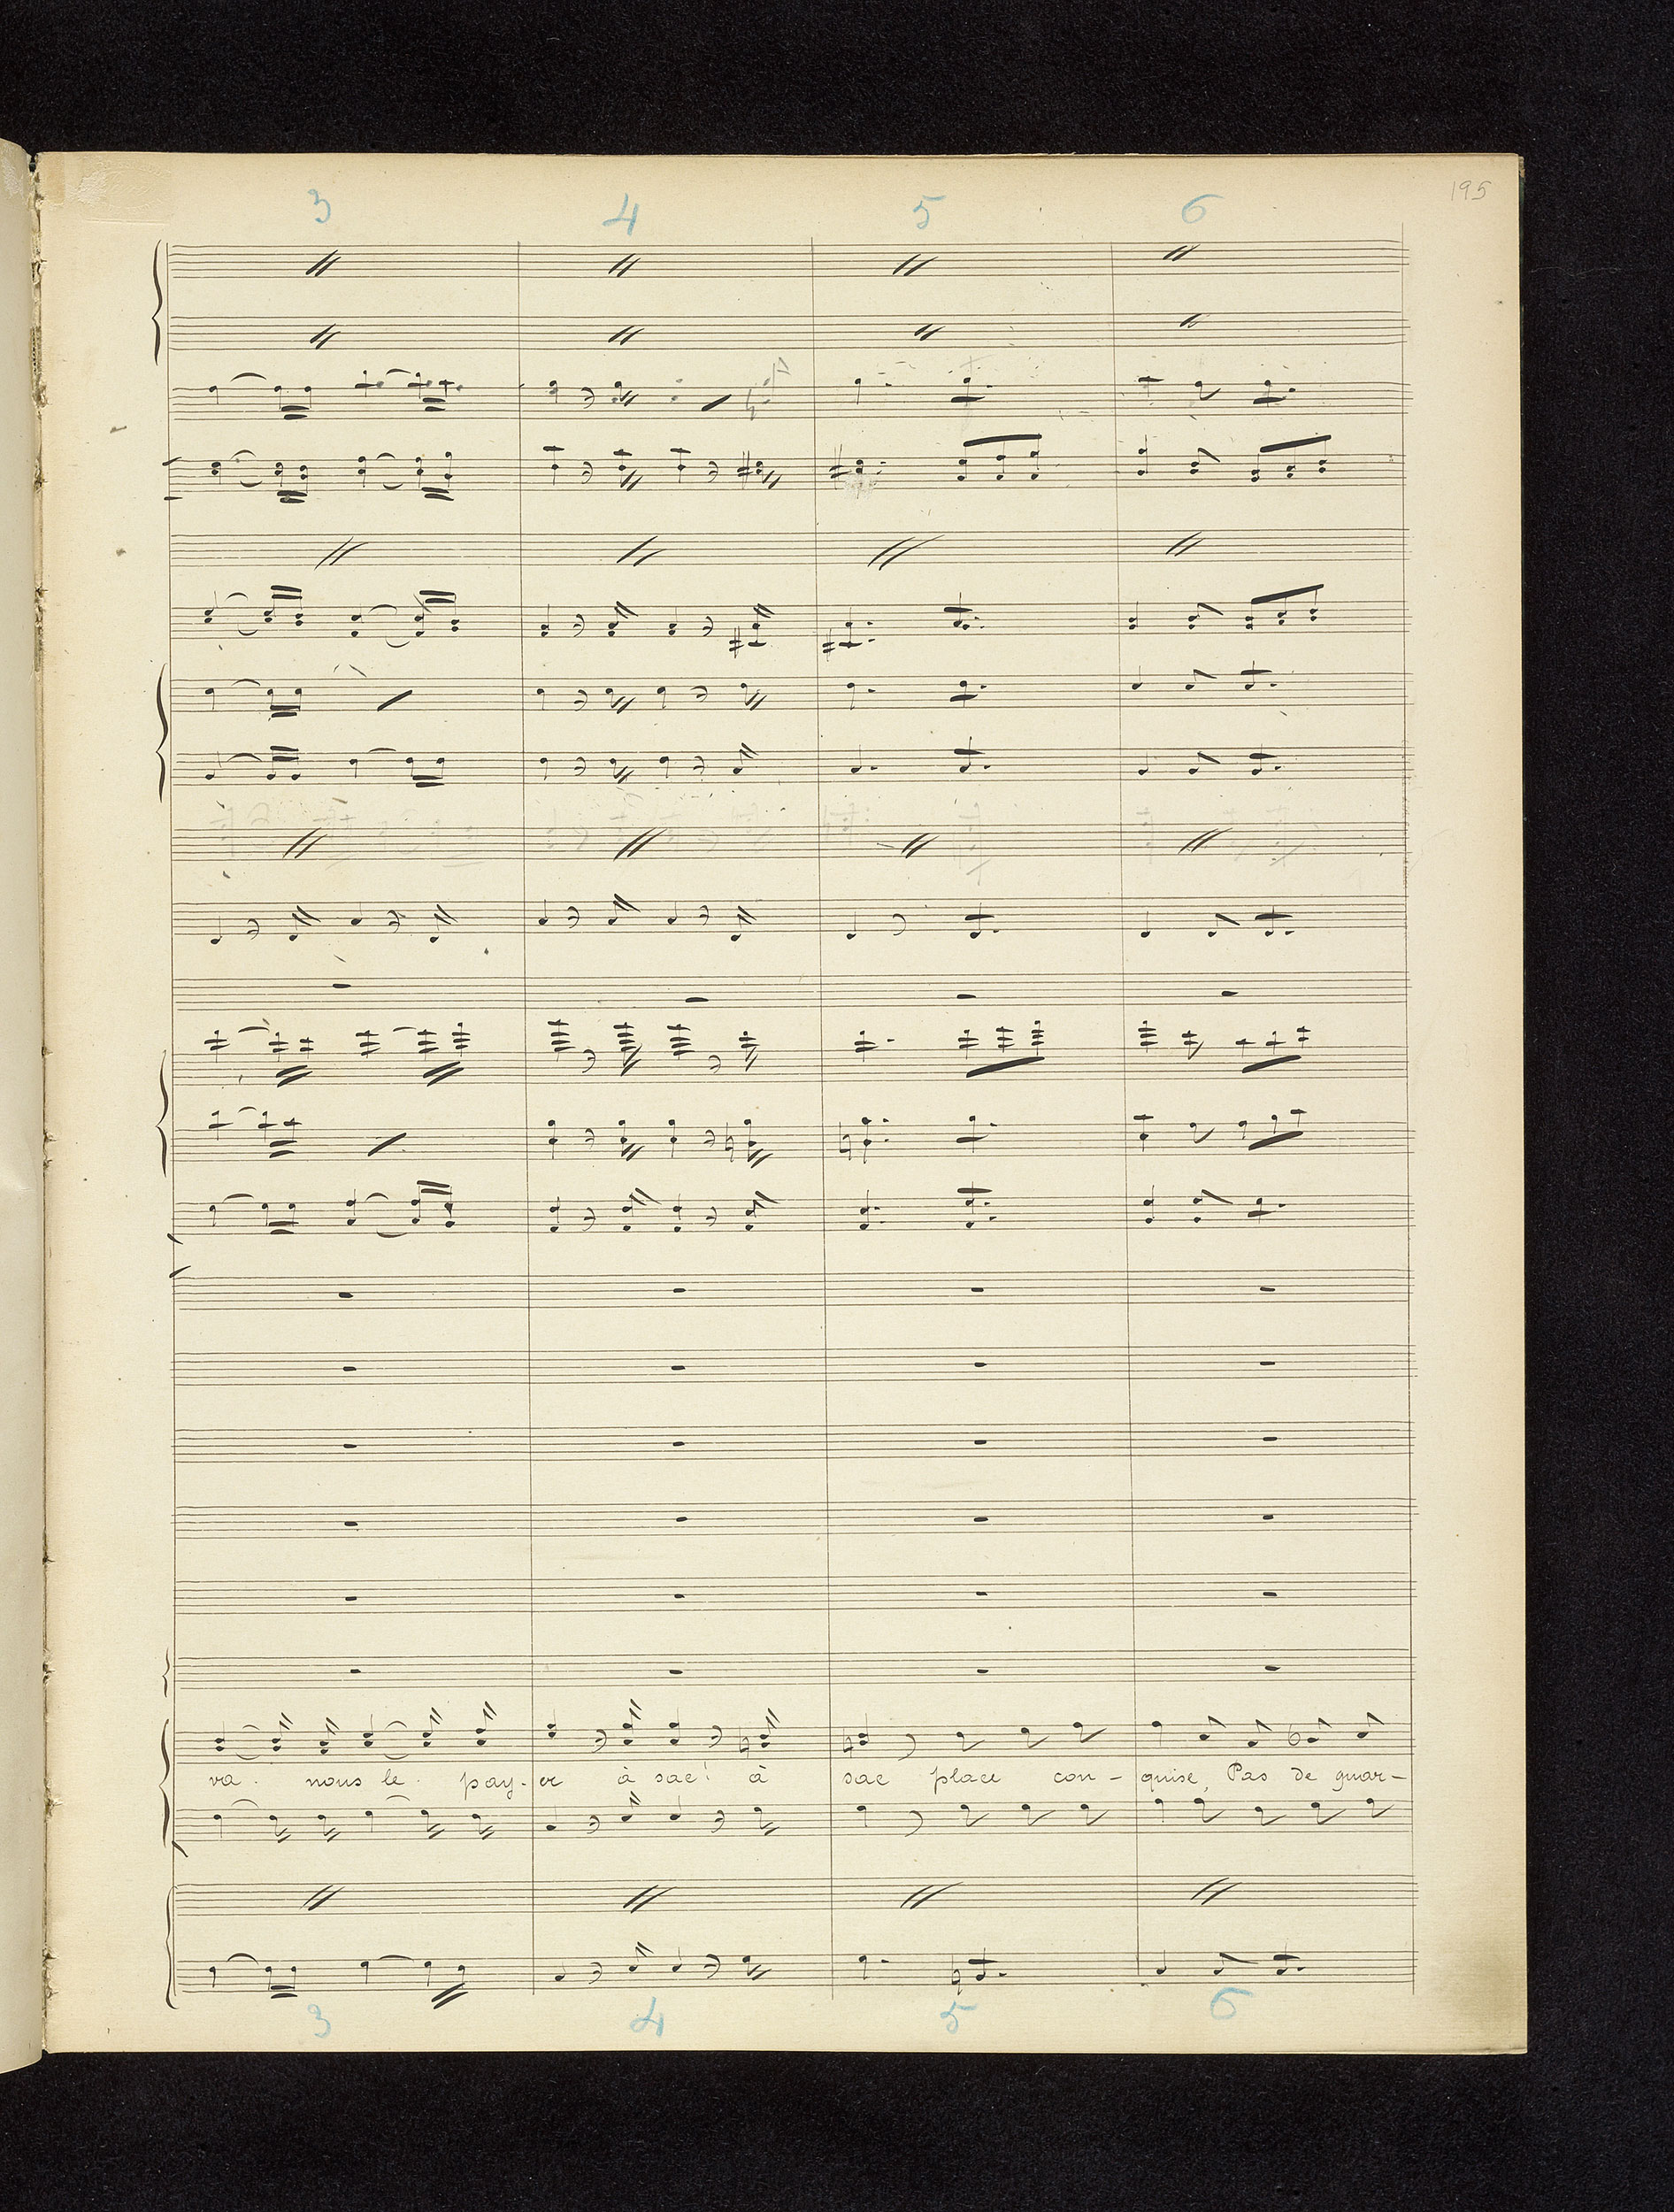 195
3 4 5 6
va. nous le pay-er à sac! à sac place con-quise, Pas de guar-
3 4 5 6